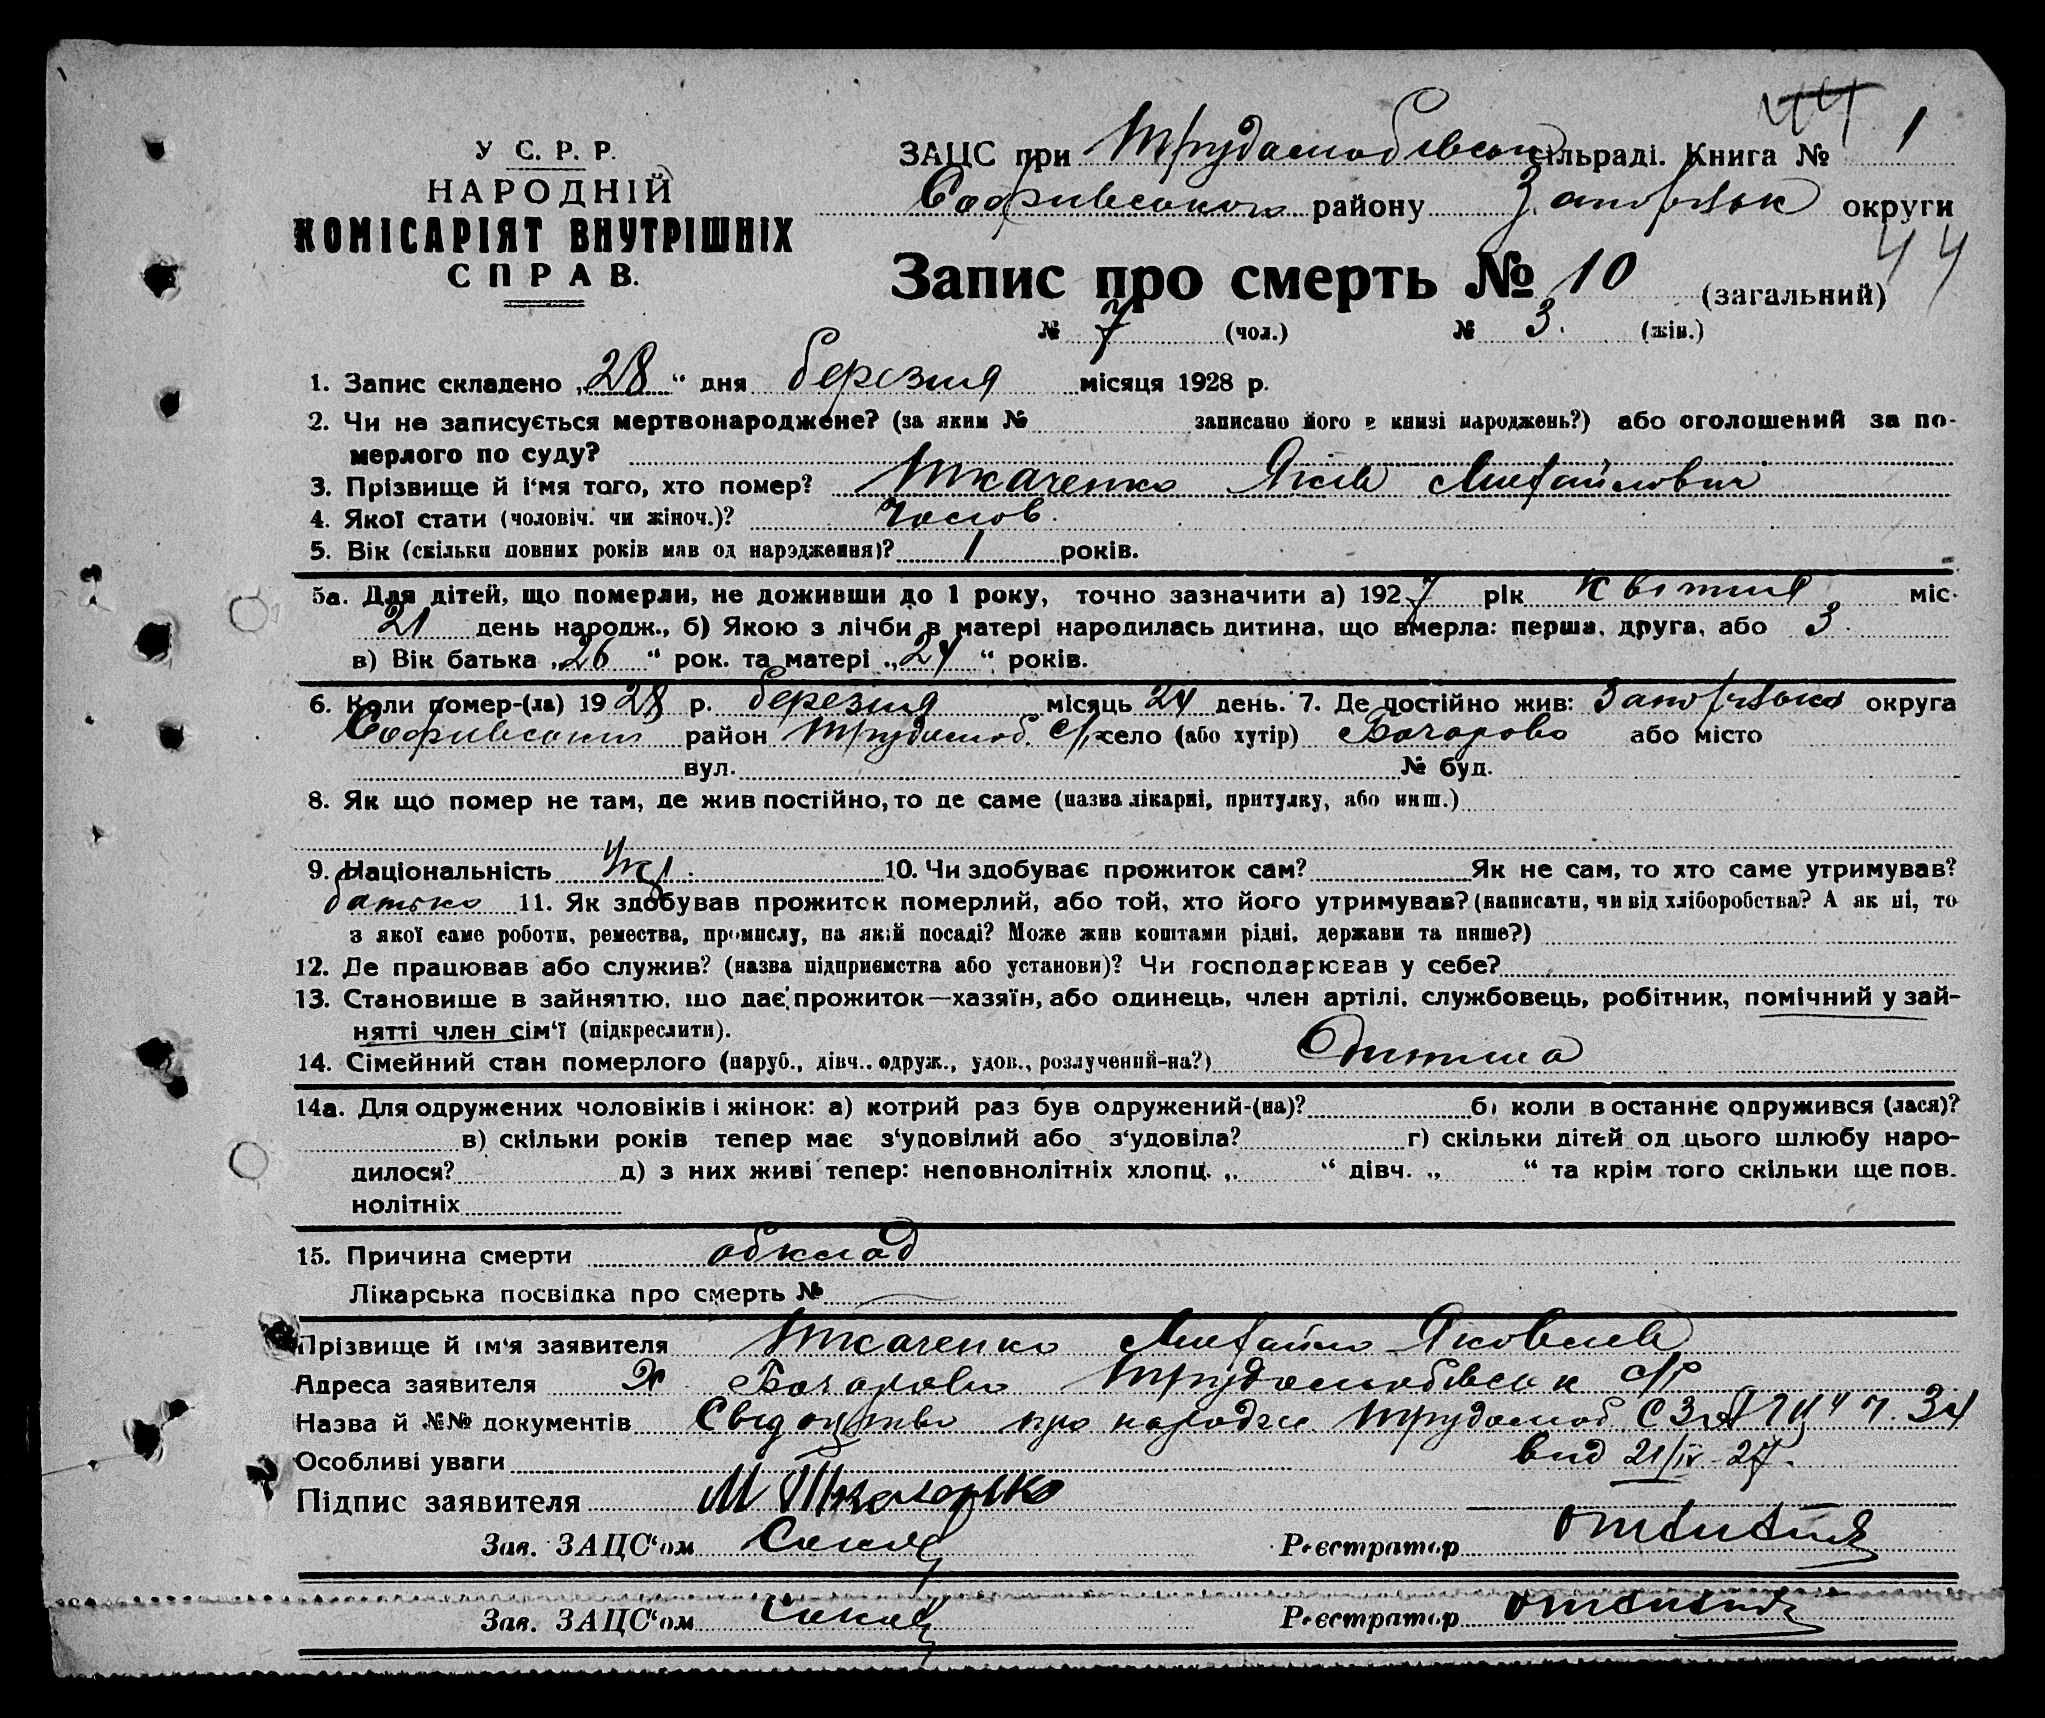 44 1
У С. Р. Р.
НАРОДНІЙ
КОМІСАРІЯТ ВНУТРІШНІХ
СПРАВ.
ЗАЦС при Трудолюбівськ сільраді. Книга № 1
Софиївського району Запоріжськ округи
44
Запис про смерть № 10 (загальний)
№ 7 (чол.) № 3. (жін.)
1. Запис складено „28“ дня березня місяця 1928 р.
2. Чи не записується мертвонароджене? (за яким № записано його в книзі народжень?) або оголошений за по-
мерлого по суду?
3. Прізвище й і'мя того, хто помер? Ткаченко Яків Михайлович
4. Якої стати (чоловіч. чи жіноч.)? чолов.
5. Вік (скільки повних років мав од народження)? 1 років.
5а. Для дітей, що померли, не доживши до 1 року, точно зазначити а) 1927 рік квітня міс.
21 день народж., б) Якою з лічби в матері народилась дитина, що вмерла: перша, друга, або 3.
в) Вік батька „26“ рок. та матері „24“ років.
6. Коли помер-(ла) 1928 р. березня місяць 24 день. 7. Де постійно жив: Запоріжська округа
Софиївський район Трудолюб. с/р село (або хутір) Бочарово або місто
вул. № буд.
8. Як що помер не там, де жив постійно, то де саме (назва лікарні, притулку, або инш.)
9. Національність Укр. 10. Чи здобуває прожиток сам? Як не сам, то хто саме утримував?
батько 11. Як здобував прожиток померлий, або той, хто його утримував? (написати, чи від хліборобства? А як ні, то
з якої саме роботи, ремества, промислу, на якій посаді? Може жив коштами рідні, держави та инше?)
12. Де працював або служив? (назва підприємства або установи)? Чи господарював у себе?
13. Становище в зайняттю, що дає прожиток—хазяїн, або одинець, член артілі, службовець, робітник, помічний у зай-
нятті член сім'ї (підкреслити).
14. Сімейний стан померлого (паруб., дівч., одруж., удов., розлучений-на?) Дитина
14а. Для одружених чоловіків і жінок: а) котрий раз був одружений-(на)? б) коли в останнє одружився (лася)?
в) скільки років тепер має з'удовілий або з'удовіла? г) скільки дітей од цього шлюбу наро-
дилося? д) з них живі тепер: неповнолітніх хлопц. „ “ дівч. „ “ та крім того скільки ще пов.
нолітніх
15. Причина смерти обклад
Лікарська посвідка про смерть №
Прізвище й ім'я заявителя Ткаченко Михайло Яковлев
Адреса заявителя х Бочарово Трудолюбівськ с/р
Назва й №№ документів Свідоцтво про народж Трудолюб. ч. 34
Особливі уваги вид 21/IV-27.
Підпис заявителя М Ткаченко
Зав. ЗАЦС'ом Реєстратор
Зав. ЗАЦС'ом Реєстратор